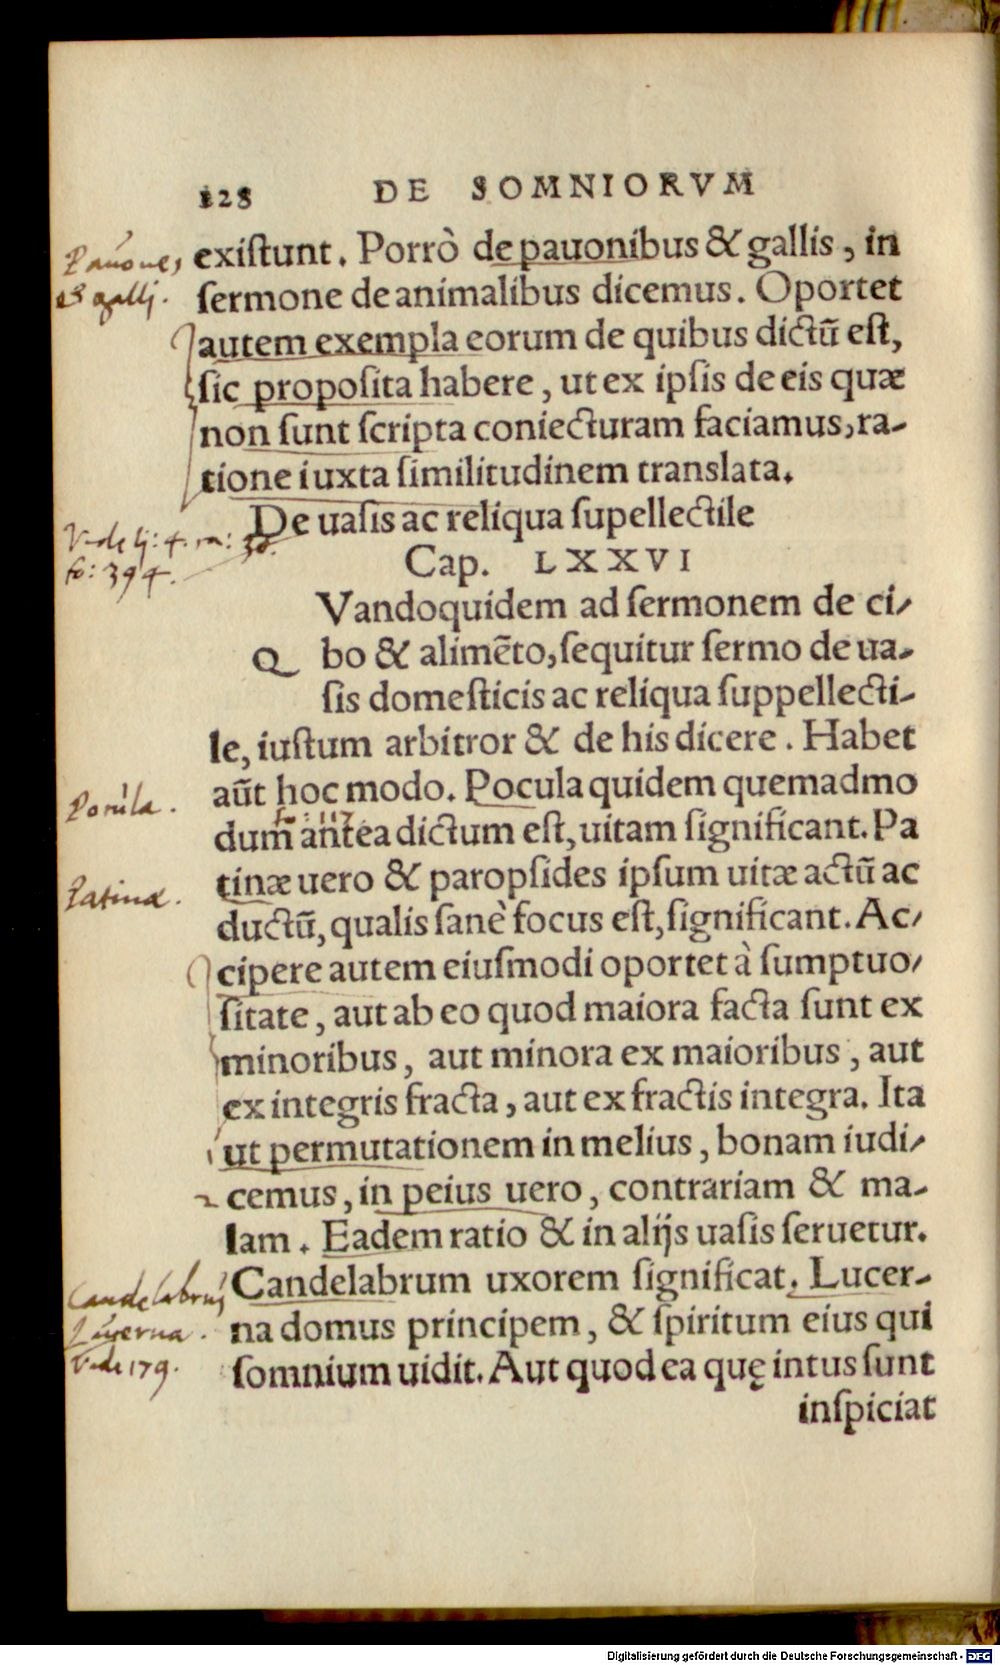 128 DE SOMNIORVM
Pauones existunt. Porrò de pauonibus & gallis, in
& galli. sermone de animalibus dicemus. Oportet
autem exempla eorum de quibus dictũ est,
sic proposita habere, ut ex ipsis de eis quæ
non sunt scripta coniecturam faciamus, ra-
tione iuxta similitudinem translata.
De uasis ac reliqua supellectile
Vide li: 4. ca: 30.
fo: 394.
Cap. LXXVI
Vandoquidem ad sermonem de ci-
Q bo & alimẽto, sequitur sermo de ua-
sis domesticis ac reliqua suppellecti-
le, iustum arbitror & de his dicere. Habet
aũt hoc modo. Pocula quidem quemadmo
Pocula.
fo: 117.
dum antea dictum est, uitam significant. Pa
Patinæ. tinæ uero & paropsides ipsum uitæ actũ ac
ductũ, qualis sanè focus est, significant. Ac-
cipere autem eiusmodi oportet à sumptuo-
sitate, aut ab eo quod maiora facta sunt ex
minoribus, aut minora ex maioribus, aut
ex integris fracta, aut ex fractis integra. Ita
1 ut permutationem in melius, bonam iudi-
2 cemus, in peius uero, contrariam & ma-
lam. Eadem ratio & in alijs uasis seruetur.
Candelabrũ Candelabrum uxorem significat. Lucer-
Lucerna. na domus principem, & spiritum eius qui
Vide 179. somnium uidit. Aut quod ea quę intus sunt
inspiciat
Digitalisierung gefördert durch die Deutsche Forschungsgemeinschaft - DFG